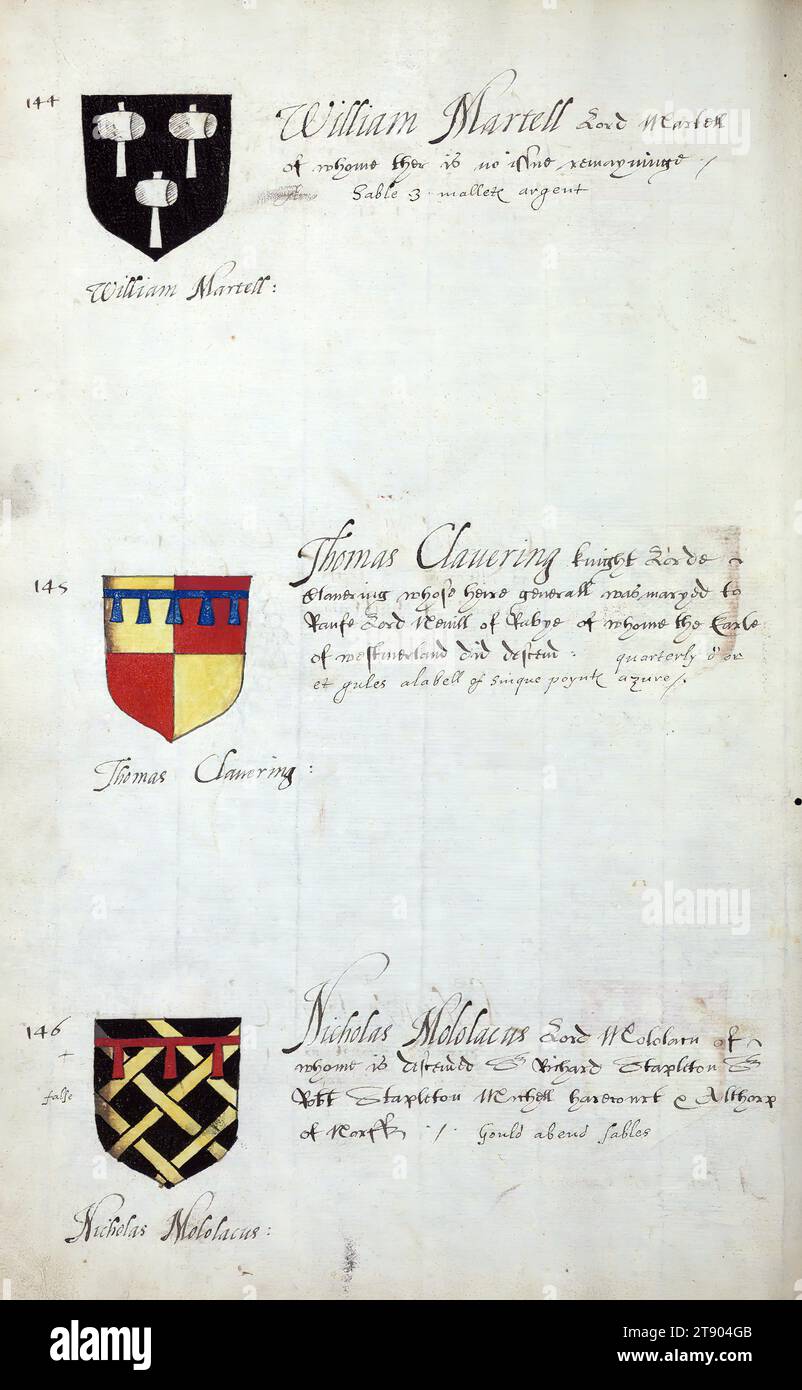 144
William Martell Lord Martell
of whome ther is no issue remayninge
Sable 3 mallets argent
William Martell:
alamy
145
Thomas Clavering knight Lorde
Clavering whose heire generall was maryed to
Raufe Lord Nevill of Rabye of whome the Earle
of westmerland did descend: quarterly or
et gules a labell of sinque poynts azure
Thomas Clavering:
alamy
146
+
false
Nicholas Mololacus Lord Mololacu of
whome is discened Sr Richard Stapleton Sr
Robt Stapleton Michell harecourt & Althorp
of Norff Gould a bend sables
Nicholas Mololacus:
a
alamy
Image ID: 2T904GB
www.alamy.com